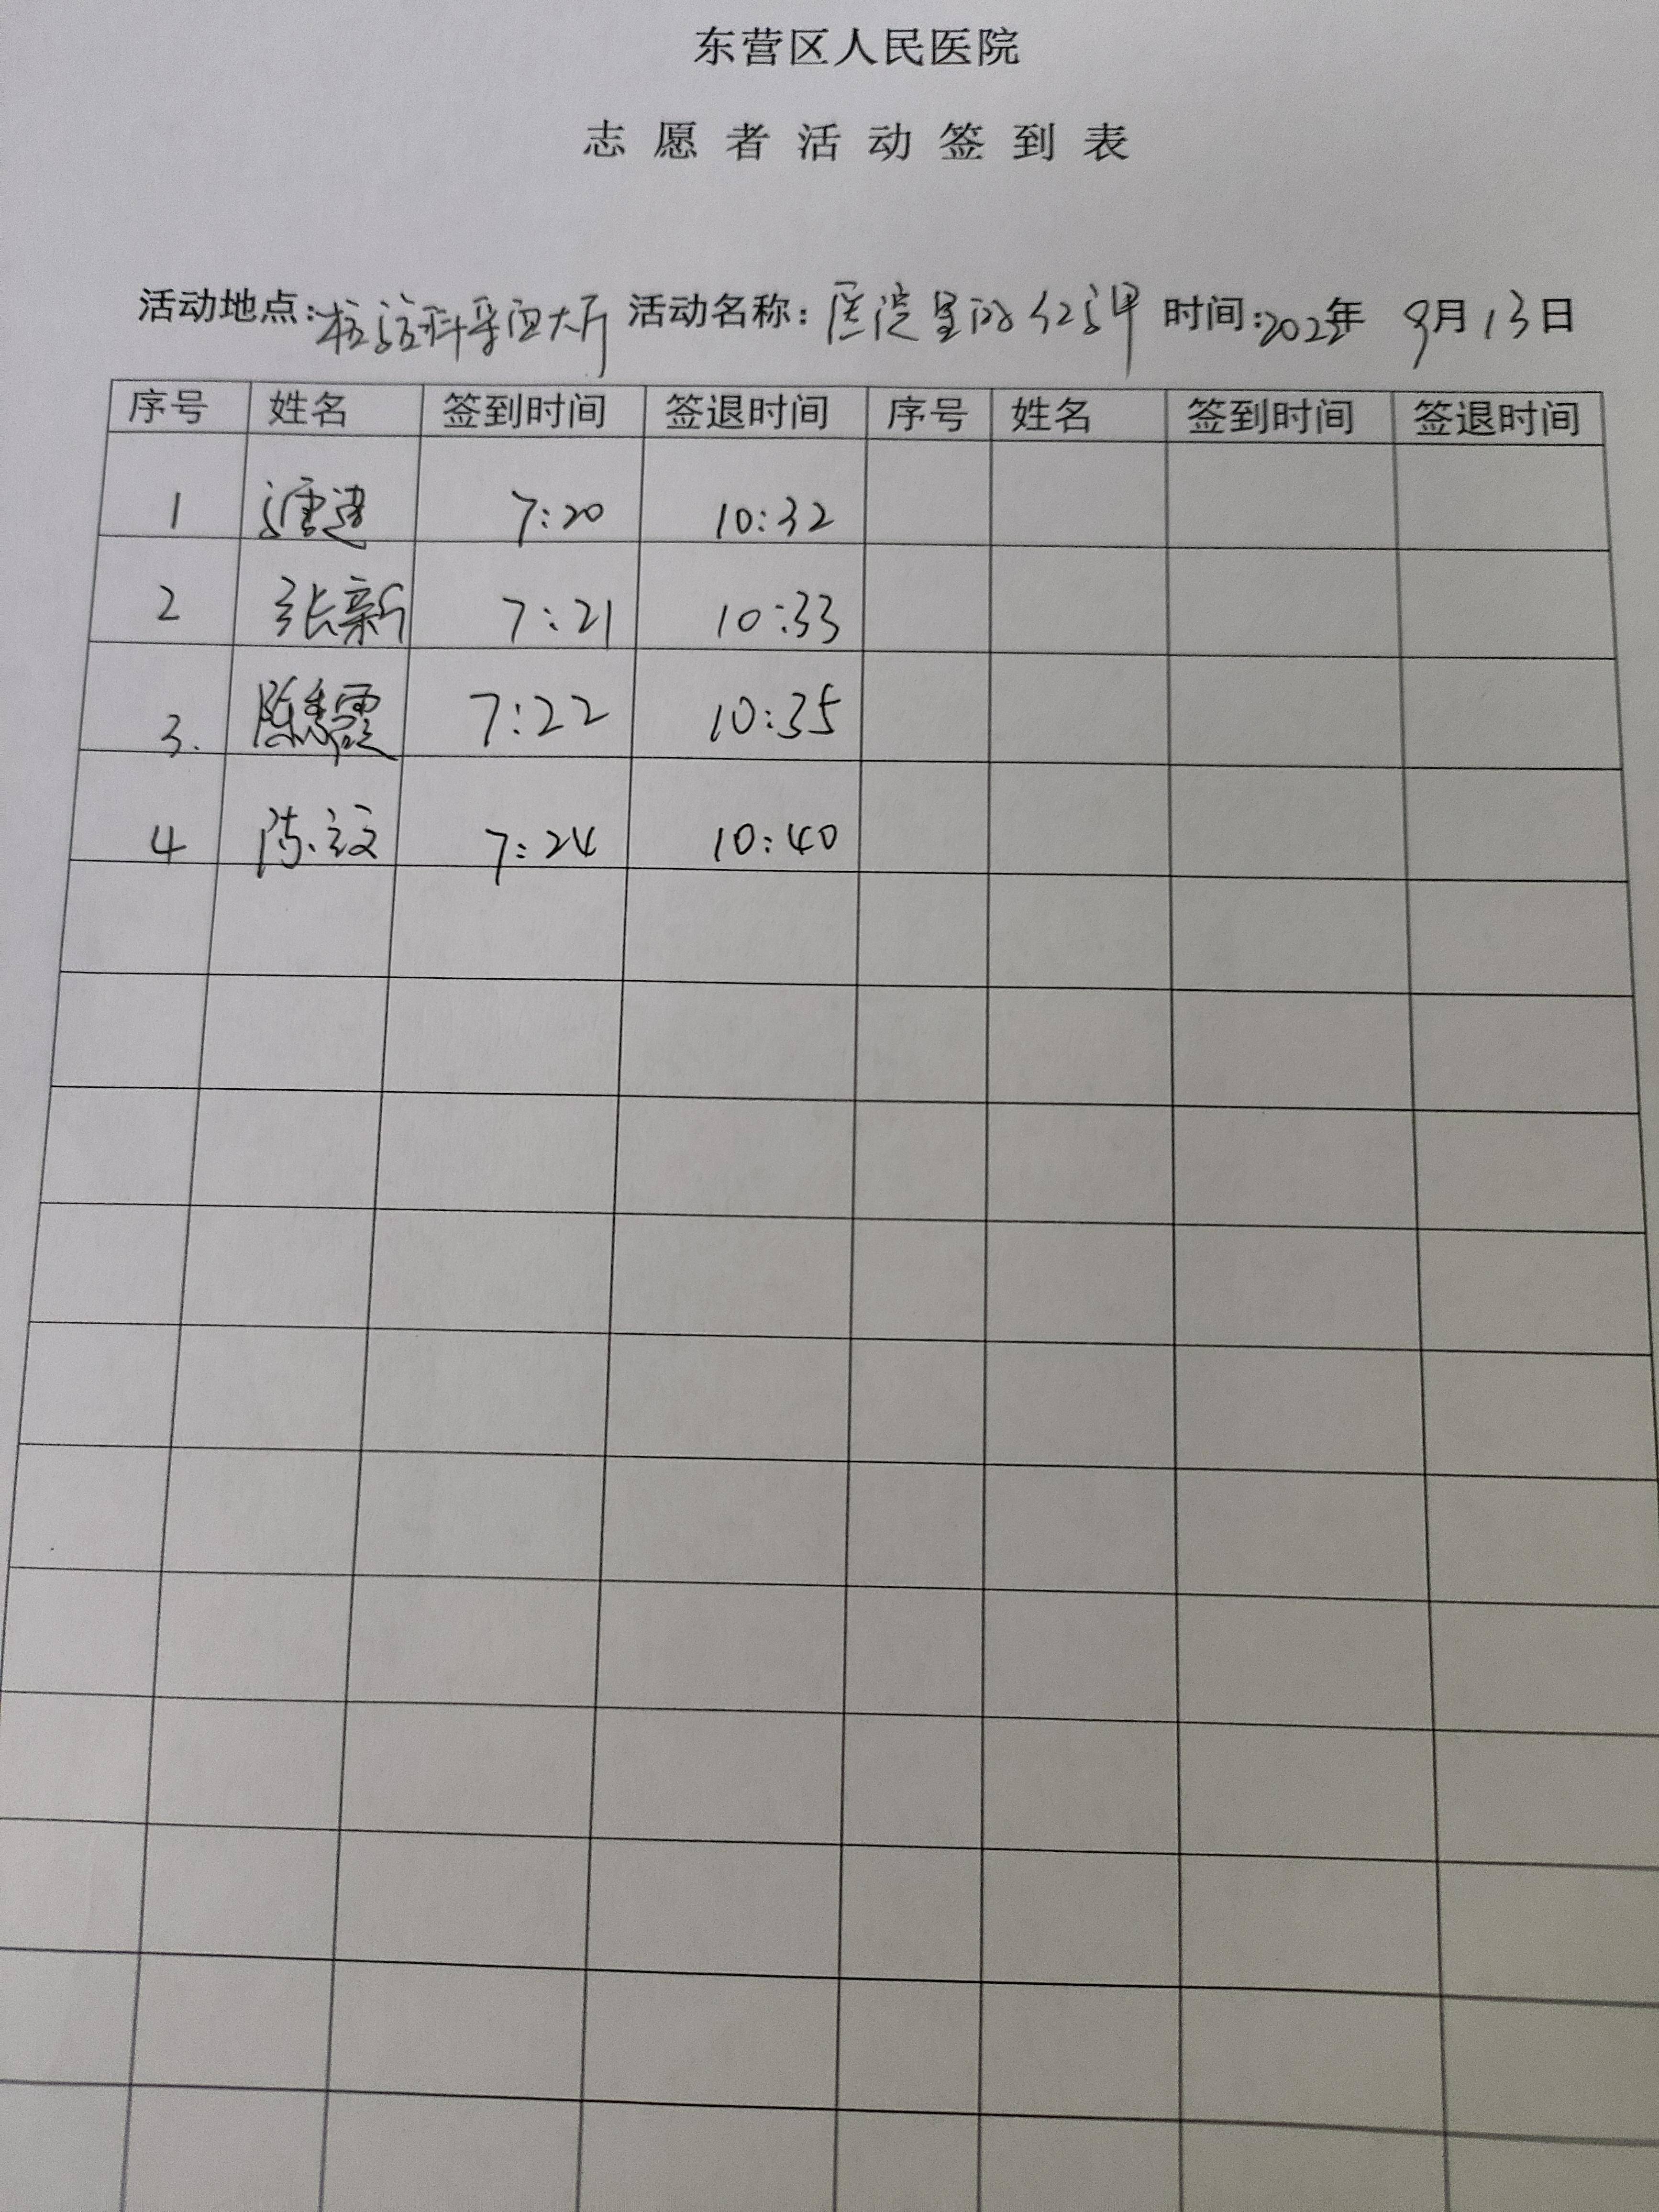 东营区人民医院
志愿者活动签到表
活动地点：检验科采血大厅 活动名称：医院里的红马甲 时间：2022年 9月13日
序号 姓名 签到时间 签退时间 序号 姓名 签到时间 签退时间
1 7:20 10:32
2 张新 7:21 10:33
3. 陈秀霞 7:22 10:35
4 陈文 7:24 10:40